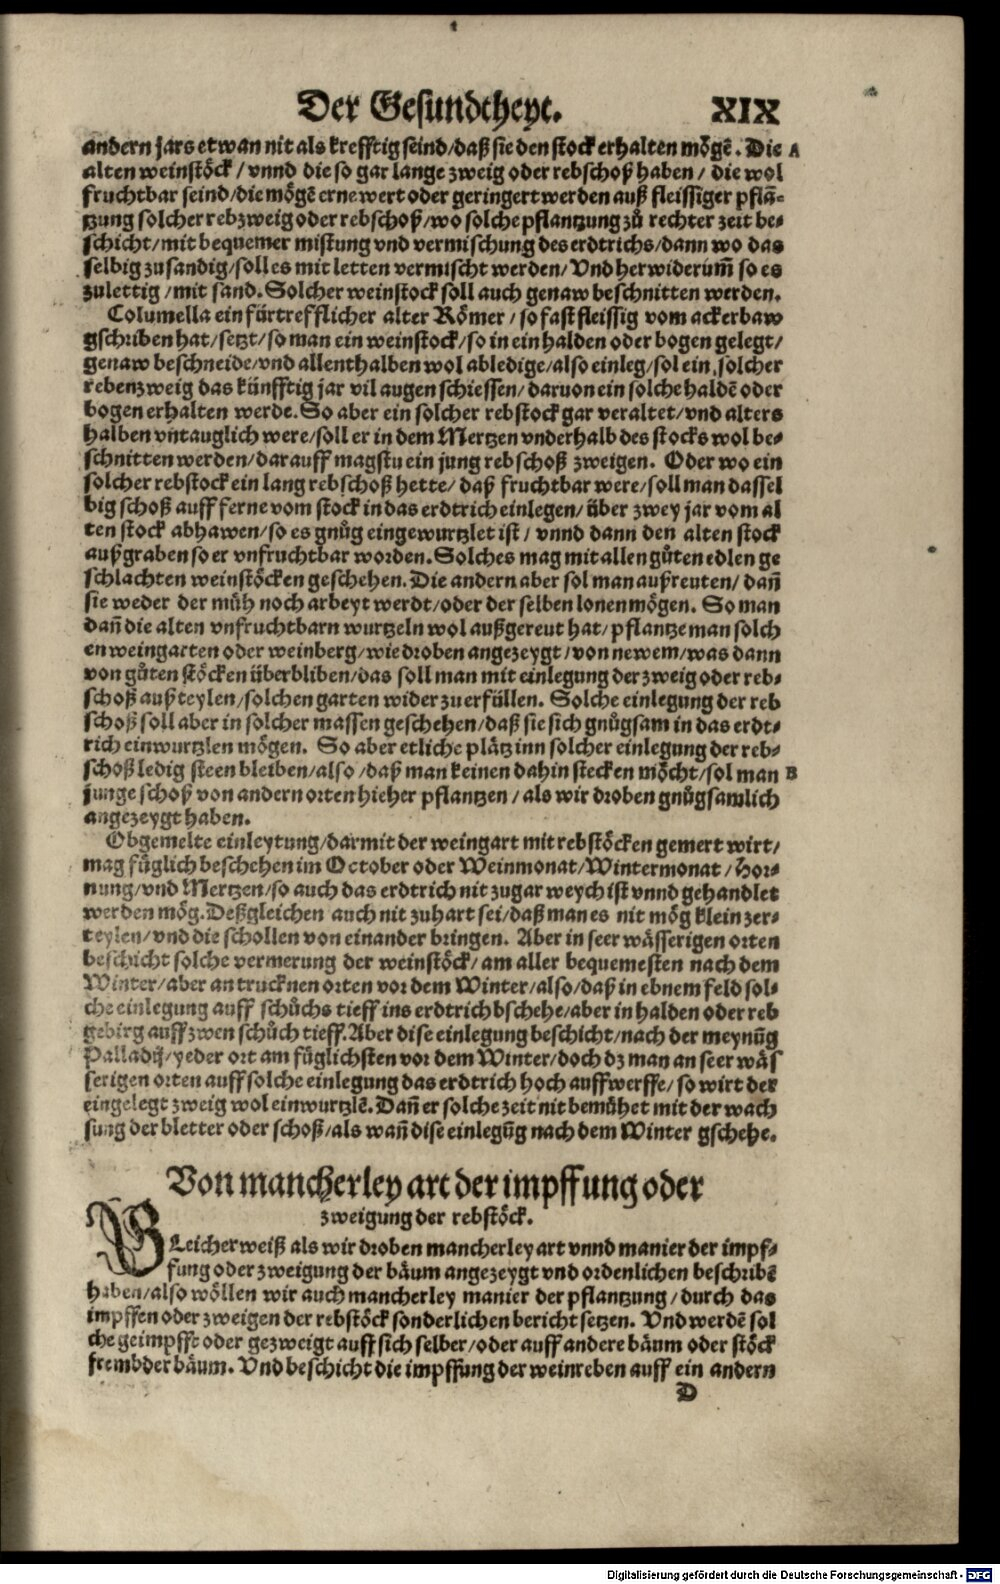 Der Gesundtheyt. XIX
andern jars etwan nit als krefftig seind/daß sie den stock erhalten mögē. Die A
alten weinstöck/ vnnd die so gar lange zweig oder rebschoß haben/ die wol
fruchtbar seind/die mögē ernewert oder geringert werden auß fleissiger pflā-
tzung solcher rebzweig oder rebschoß/wo solche pflantzung zů rechter zeit be-
schicht/mit bequemer mistung vnd vermischung des erdtrichs/dann wo das
selbig zu sandig/soll es mit letten vermischt werden/Vnd herwiderum̃ so es
zulettig/mit sand. Solcher weinstock soll auch genaw beschnitten werden.
Columella ein fürtrefflicher alter Römer/so fast fleissig vom ackerbaw
gschriben hat/setzt/so man ein weinstock/so in ein halden oder bogen gelegt/
genaw beschneide/vnd allenthalben wol abledige/also einleg/sol ein solcher
rebenzweig das künfftig jar vil augen schiessen/daruon ein solche haldē oder
bogen erhalten werde. So aber ein solcher rebstock gar veraltet/vnd alters
halben vntauglich were/soll er in dem Mertzen vnderhalb des stocks wol be-
schnitten werden/darauff magstu ein jung rebschoß zweigen. Oder wo ein
solcher rebstock ein lang rebschoß hette/daß fruchtbar were/soll man dassel
big schoß auff ferne vom stock in das erdtrich einlegen/über zwey jar vom al
ten stock abhawen/so es gnůg eingewurtzlet ist/vnnd dann den alten stock
außgraben so er vnfruchtbar worden. Solches mag mit allen gůten edlen ge
schlachten weinstöcken geschehen. Die andern aber sol man außreuten/dañ
sie weder der müh noch arbeyt werdt/oder der selben lonen mögen. So man
dañ die alten vnfruchtbarn wurtzeln wol außgereut hat/pflantze man solch
en weingarten oder weinberg/wie droben angezeygt/von newem/was dann
von gůten stöcken überbliben/das soll man mit einlegung der zweig oder reb-
schoß außteylen/solchen garten wider zu erfüllen. Solche einlegung der reb
schoß soll aber in solcher massen geschehen/daß sie sich gnůgsam in das erdt-
rich einwurtzlen mögen. So aber etliche plätz inn solcher einlegung der reb-
schoß ledig steen bleiben/also/daß man keinen dahin stecken möcht/sol man B
junge schoß von andern orten hieher pflantzen/als wir droben gnůgsamlich
angezeygt haben.
Obgemelte einleytung/darmit der weingart mit rebstöcken gemert wirt/
mag füglich beschehen im October oder Weinmonat/Wintermonat/Hor-
nung/vnd Mertzen/so auch das erdtrich nit zugar weych ist vnnd gehandlet
werden mög. Deßgleichen auch nit zuhart sei/daß man es nit mög klein zer-
teylen/vnd die schollen von einander bringen. Aber in seer wässerigen orten
beschicht solche vermerung der weinstöck/am aller bequemesten nach dem
Winter/aber an trucknen orten vor dem Winter/also/daß in ebnem feld sol-
che einlegung auff schůchs tieff ins erdtrich bschehe/aber in halden oder reb
gebirg auff zwen schůch tieff. Aber dise einlegung beschicht/nach der meynūg
Palladij/yeder ort am füglichsten vor dem Winter/doch dz man an seer wäs
serigen orten auff solche einlegung das erdtrich hoch auffwerffe/so wirt der
eingelegt zweig wol einwurtzlē. Dañ er solche zeit nit bemühet mit der wach
sung der bletter oder schoß/als wañ dise einlegūg nach dem Winter gschehe.
Von mancherley art der impffung oder
zweigung der rebstöck.
GLeicherweiß als wir droben mancherley art vnnd manier der impf-
fung oder zweigung der bäum angezeygt vnd ordenlichen beschribē
haben/also wöllen wir auch mancherley manier der pflantzung/durch das
impffen oder zweigen der rebstöck sonderlichen bericht setzen. Vnd werdē sol
che geimpfft oder gezweigt auff sich selber/oder auff andere bäum oder stöck
frembder bäum. Vnd beschicht die impffung der weinreben auff ein andern
D
Digitalisierung gefördert durch die Deutsche Forschungsgemeinschaft - DFG